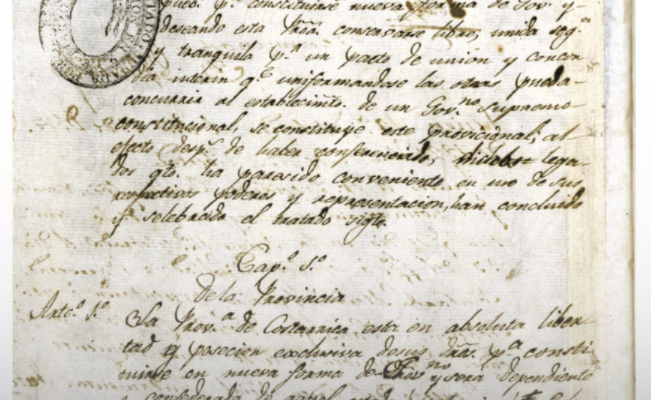 pueb.s p.a constituirse nueva forma de Gov.o y
deseando esta Prov.a conservarse libre, unida seg.a
y tranquila p.r un pacto de union y concor
dia interin q.e uniformandose las otras pueda
concurrir al establecim.to de un Gov.no Supremo
constitucional, se constituye este provicional; al
efecto desp.s de haber conferenciado, dichos lega-
dos qto. ha paresido conveniente en uso de sus
respectivos poderes y representacion, han concluido
y selebrado el tratado sigte.
Cap.o 1.o
De la Provincia
Arto.o 1.o La Prov.a de Costarrica está en absoluta liber
tad y posecion exclusiva de sus dros. p.a consti
tuirse en nueva forma de Gov.no y será dependiente
o confederada de aquel